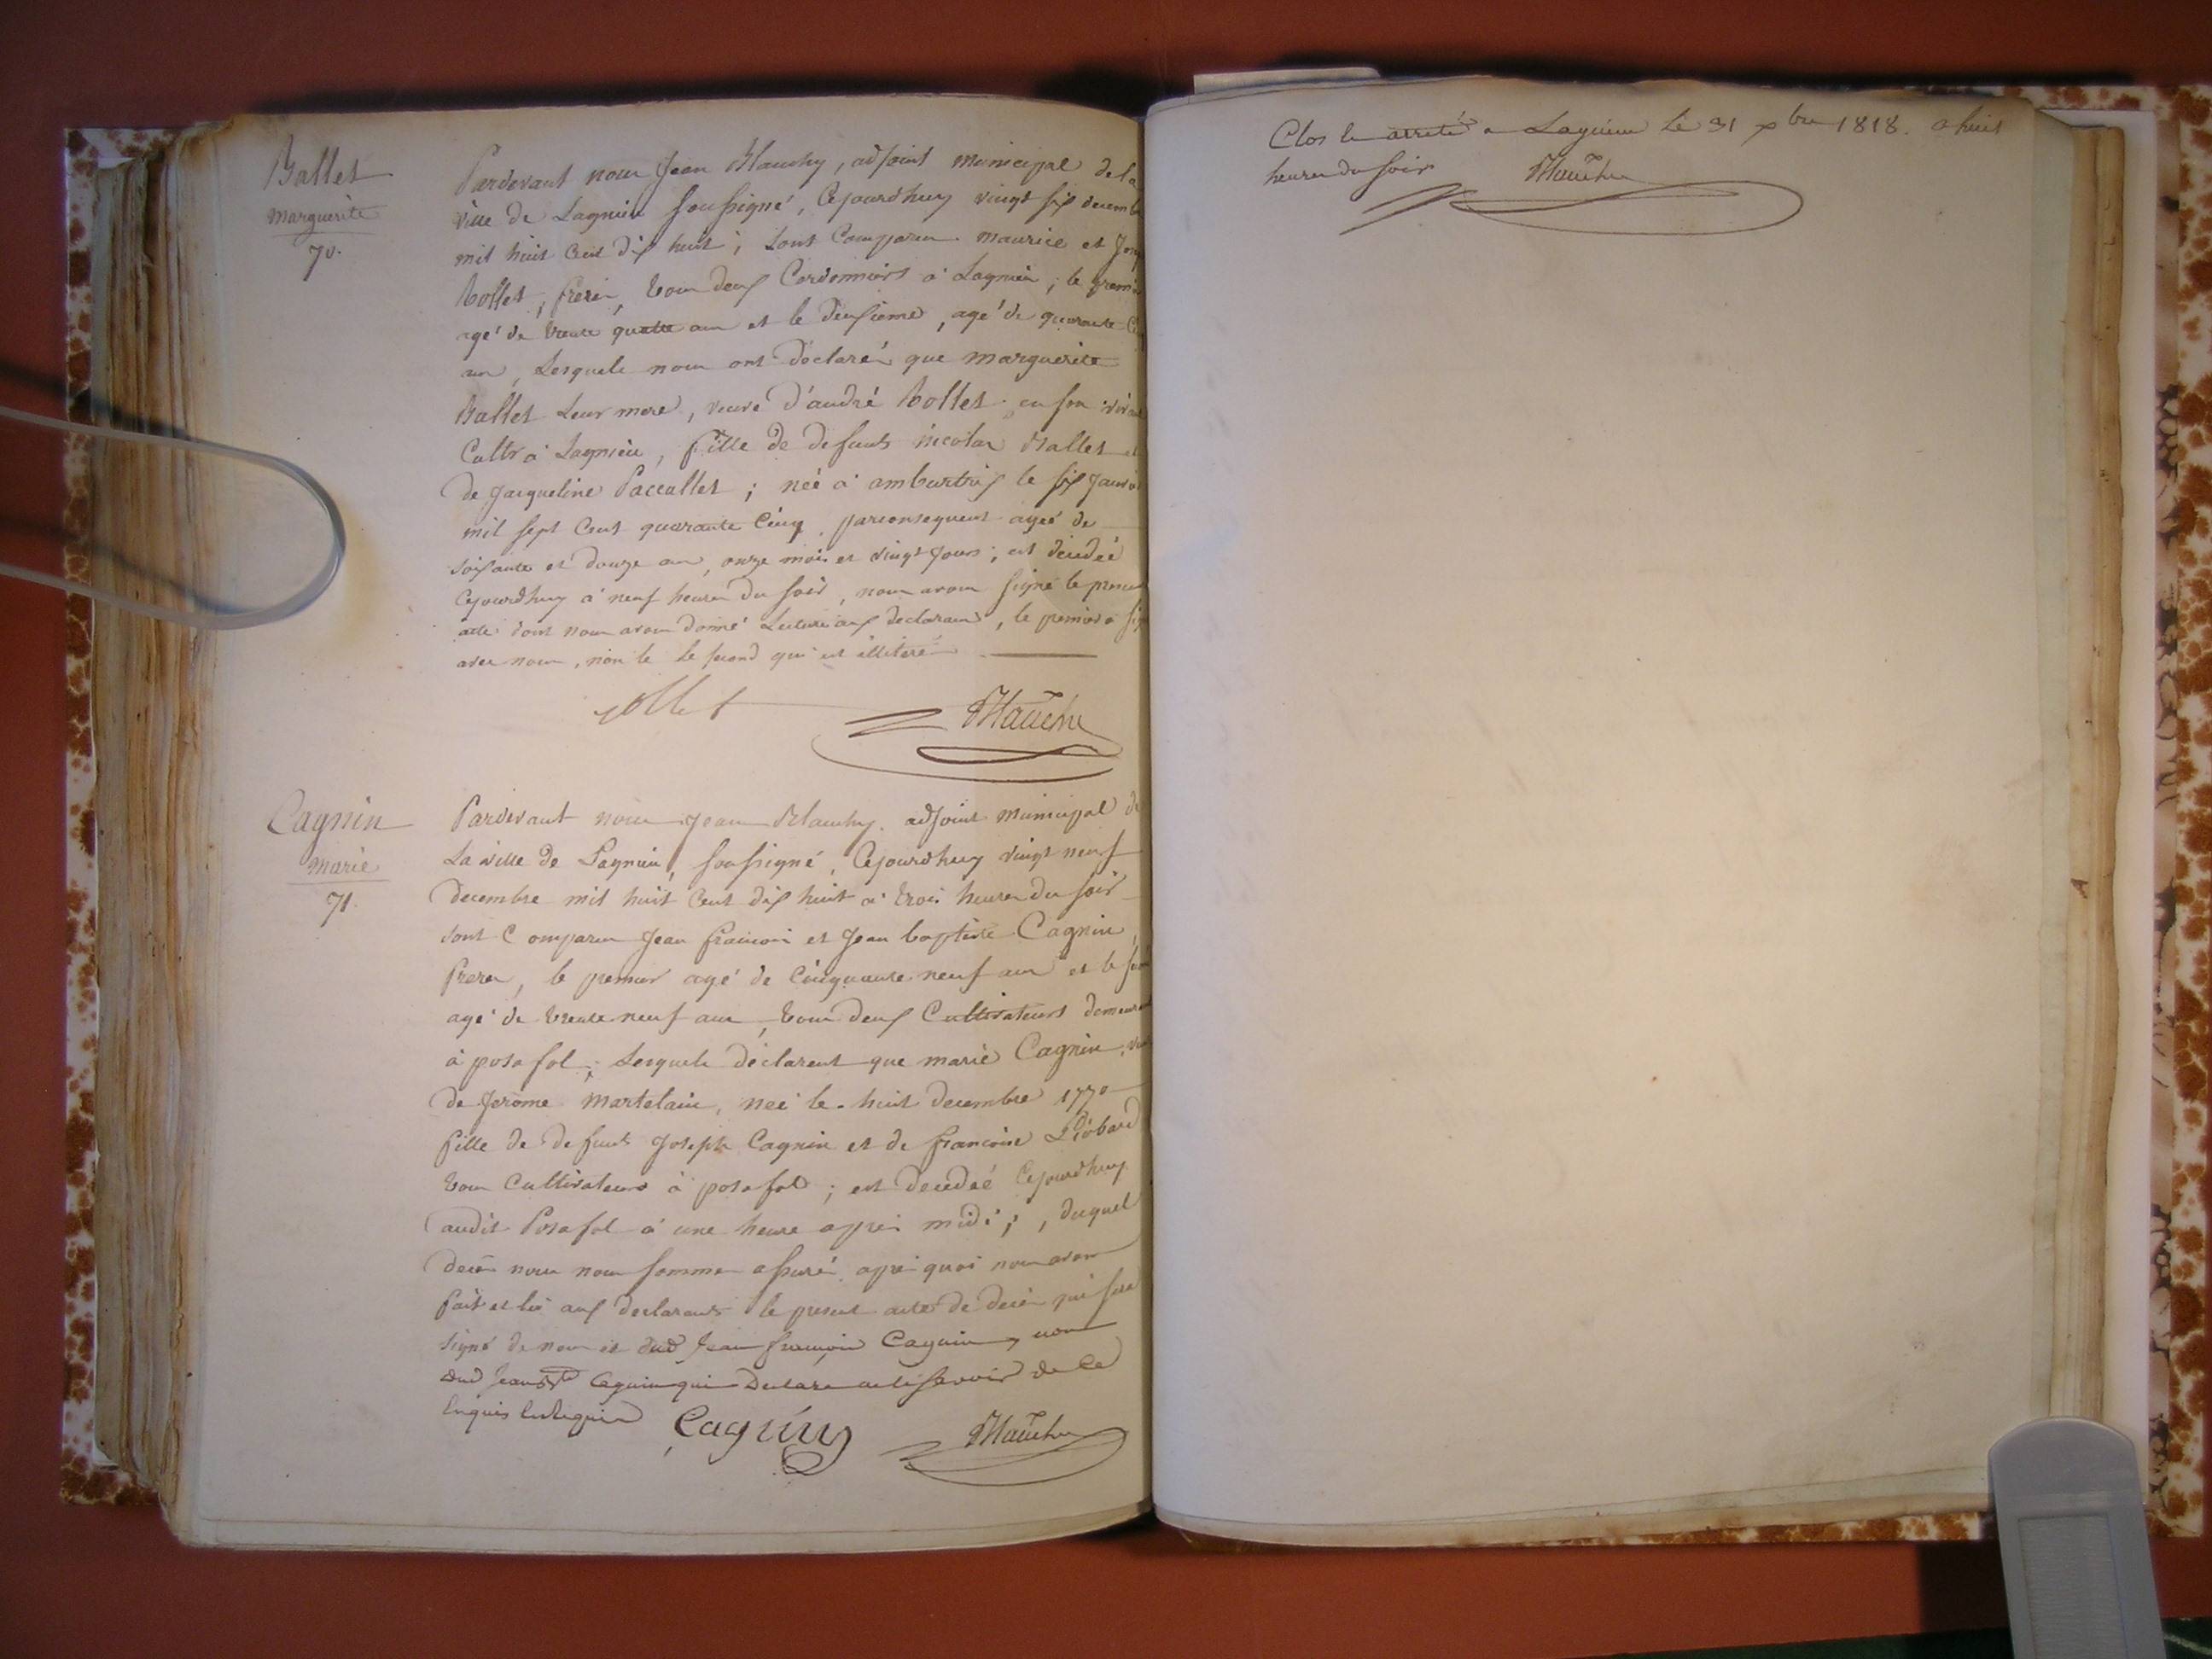 Ballet
marguerite
70.
Pardevant nous Jean Blanchy, adjoint municipal de la
ville de Lagnieu soussigné, Cejourdhuy vingt six decemb
mil huit Cent dix huit ; sont Comparus maurice et
Collet, freres, tous deux Cordonniers à Lagnieu ; le premie
agé de trente quatre ans et le deuxieme, agé de quarante
ans, Lesquels nous ont déclaré que marguerite
Ballet Leur mere, veuve d'andré Collet en son viva
Cultr à Lagnieu, fille de defunts nicolas Ballet et
de Jacqueline Paccallet ; née à ambutrix le six Janvi
mil sept Cent quarante Cinq, parconsequent agée de
soixante et douze ans, onze mois et vingt Jours ; est décedée
Cejourdhuy à neuf heures du soir, nous avons signé le presen
acte dont nous avons donné Lecture aux declarans, le premier a sig
avec nous, non le second qui est illiteré
ollet
Blanchy
Cagnin
marie
71.
Pardevant nous Jean Blanchy. adjoint municipal de
La ville de Lagnieu, soussigné, Cejourdhuy vingt neuf
decembre mil huit Cent dix huit à trois heures du soir
sont Comparus Jean françois et Jean baptiste Cagnin,
freres, le premier agé de Cinquante neuf ans et le
agé de trente neuf ans, tous deux Cultivateurs demeura
à posafol ; Lesquels déclarent que marie Cagnin,
de Jerome martelain, née le huit decembre 1770
fille de defunts Joseph Cagnin et de françoise Liobard
tous Cultivateurs à posafol ; est decedée Cejourdhuy
audit Posafol à une heure après midi ; , duquel
decès nous nous sommes assuré, après quoi nous avons
fait et lu aux declarants le present acte de decès qui sera
signé de nous et dud Jean françois Cagnin, non
dud Jean Bte Cagnin qui Declare ne le savoir de ce
Enquis et Requis
Cagnin
Blanchy
Clos le arreté a Lagnieu Le 31 xbre 1818. a huit
heures du soir
Blanchy